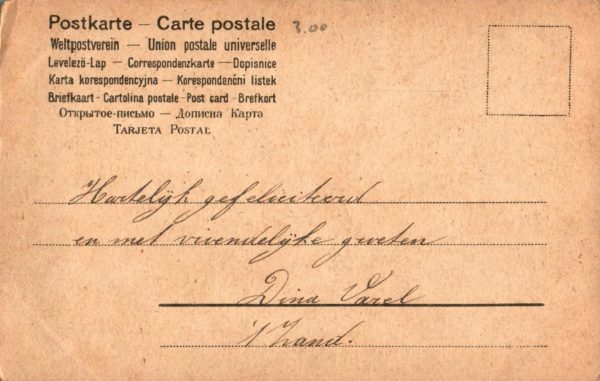 Postkarte – Carte postale
3.00
Weltpostverein — Union postale universelle
Levelező-Lap — Correspondenzkarte — Dopisnice
Karta korespondencyjna — Korespondenčni listek
Briefkaart - Cartolina postale - Post card - Brefkort
Открытое-письмо — Дописна Карта
TARJETA POSTAL
Hartelijk gefeliciteerd
en met vriendelijke groeten
Dina Varel
't Zand.